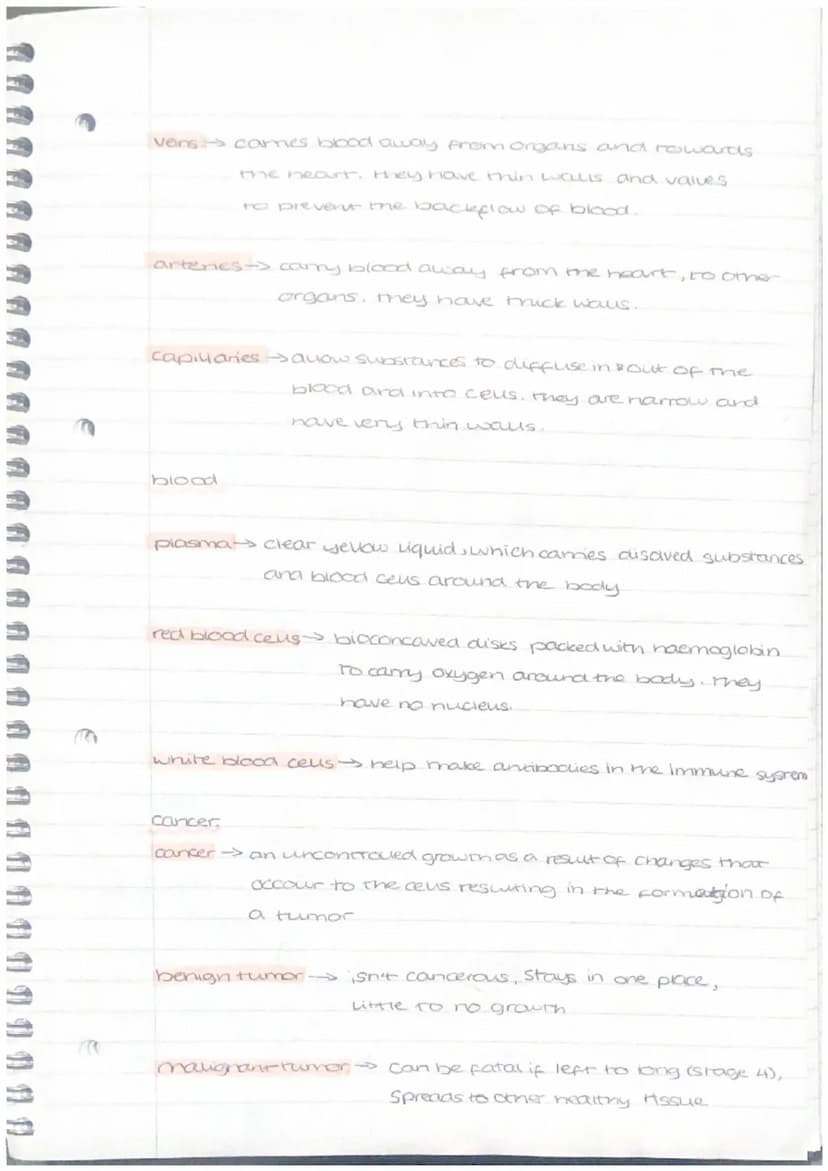 veins → carries blood away from organs and towards
the heart. they have thin walls and valves
to prevent the backflow of blood.
arteries → carry blood away from the heart, to other
organs. they have thick walls.
capillaries → allow substances to diffuse in & out of the
blood and into cells. they are narrow and
have very thin walls.
blood
plasma → clear yellow liquid, which carries disolved substances
and blood cells around the body
red blood cells → bioconcaved disks packed with haemoglobin
to carry oxygen around the body. they
have no nucleus.
white blood cells → help make antibodies in the immune system
cancer.
cancer → an uncontrolled growth as a result of changes that
occour to the cells resulting in the formation of
a tumor
benign tumor → isn't cancerous, stays in one place,
little to no growth
malignant tumor → can be fatal if left to long (stage 4),
spreads to other healthy tissue